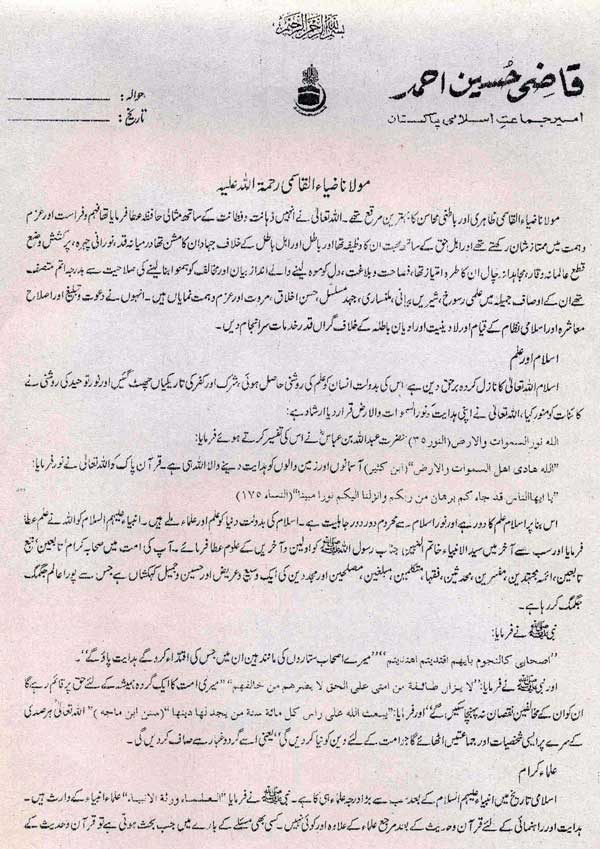 بسم اللہ الرحمن الرحیم
قاضی حسین احمد
امیر جماعت اسلامی پاکستان
حوالہ:
تاریخ:
مولانا ضیاء القاسمی رحمۃ اللہ علیہ
مولانا ضیاء القاسمی ظاہری اور باطنی محاسن کا بہترین مرقع تھے۔ اللہ تعالیٰ نے انہیں ذہانت و فطانت کے ساتھ مثالی حافظہ عطا فرمایا تھا فہم و فراست اور عزم
و ہمت میں ممتاز شان رکھتے تھے اور اہل حق کے ساتھ محبت ان کا وظیفہ تھا اور باطل اور اہل باطل کے خلاف جہاد ان کا مشن تھا درمیانہ قد، نورانی چہرہ، پرکشش وضع
قطع عالمانہ وقار، مجاہدانہ چال ان کا طرہ امتیاز تھا، فصاحت و بلاغت، دل کو موہ لینے والے انداز بیان اور مخالف کو ہمنوا بنا لینے کی صلاحیت سے بدرجہ اتم متصف
تھے ان کے اوصاف جمیلہ میں علمی رسوخ، شیریں بیانی، ملنساری، جہد مسلسل، حسن اخلاق، مروت اور عزم و ہمت نمایاں ہیں۔ انہوں نے دعوت و تبلیغ اور اصلاح
معاشرہ اور اسلامی نظام کے قیام اور لادینیت اور ادیان باطلہ کے خلاف گراں قدر خدمات سرانجام دیں۔
اسلام اور علم
اسلام اللہ تعالیٰ کا نازل کردہ برحق دین ہے اس کی بدولت انسان کو علم کی روشنی حاصل ہوئی، شرک اور کفر کی تاریکیاں چھٹ گئیں اور نور توحید کی روشنی نے
کائنات کو منور کیا، اللہ تعالیٰ نے اپنی ہدایت کو نور السموات والارض قرار دیا ارشاد ہے:
الله نور السموات والارض (النور ۳۵) حضرت عبداللہ بن عباسؓ نے اس کی تفسیر کرتے ہوئے فرمایا:
"الله هادى اهل السموات والارض" (ابن کثیر) آسمانوں اور زمین والوں کو ہدایت دینے والا اللہ ہی ہے۔ قرآن پاک کو اللہ تعالیٰ نے نور فرمایا:
"يا ايها الناس قد جاء كم برهان من ربكم وانزلنا اليكم نورا مبينا" (النساء ۱۷۵)
اس بنا پر اسلام علم کا دور ہے اور نور اسلام سے محروم دور دور جاہلیت ہے۔ اسلام کی بدولت دنیا کو علم اور علماء ملے ہیں۔ انبیاء علیہم السلام کو اللہ نے علم عطا
فرمایا اور سب سے آخر میں سید الانبیاء خاتم النبیین جناب رسول اللہ ﷺ کو اولین و آخرین کے علوم عطا فرمائے۔ آپ کی امت میں صحابہ کرامؓ تابعین، تبع
تابعین، ائمہ مجتہدین، مفسرین، محدثین، فقہا، متکلمین، مبلغین، مصلحین اور مجددین کی ایک وسیع و عریض اور حسین و جمیل کہکشاں ہے جس سے پورا عالم جگمگ
جگمگ کر رہا ہے۔
نبی ﷺ نے فرمایا:
"اصحابى كالنجوم بايهم اقتديتم اهتديتم" "میرے اصحاب ستاروں کی مانند ہیں ان میں جس کی اقتداء کرو گے ہدایت پاؤ گے"۔
اور نبی ﷺ نے فرمایا: "لا يزال طائفة من امتى على الحق لا يضرهم من خالفهم" "میری امت کا ایک گروہ ہمیشہ کے لئے حق پر قائم رہے گا
ان کو ان کے مخالفین نقصان نہ پہنچا سکیں گے" اور فرمایا: "يبعث الله على راس كل مائة سنة من يجد لها دينها" (سنن ابن ماجه) "اللہ تعالیٰ ہر صدی
کے سرے پر ایسی شخصیات اور جماعتیں اٹھائے گا جو امت کے لئے دین کو نیا کر دیں گی" یعنی اسے گرد و غبار سے صاف کر دیں گی۔
علماء کرام
اسلامی تاریخ میں انبیاء علیہم السلام کے بعد سب سے بڑا درجہ علماء ہی کا ہے۔ نبی ﷺ نے فرمایا "العلماء ورثة الانبياء" علماء انبیاء کے وارث ہیں۔
ہدایت اور راہنمائی کے لئے قرآن و حدیث کے بعد مرجع علماء کے علاوہ اور کوئی نہیں۔ کسی بھی مسئلے کے بارے میں جب بحث ہوتی ہے تو قرآن و حدیث کے